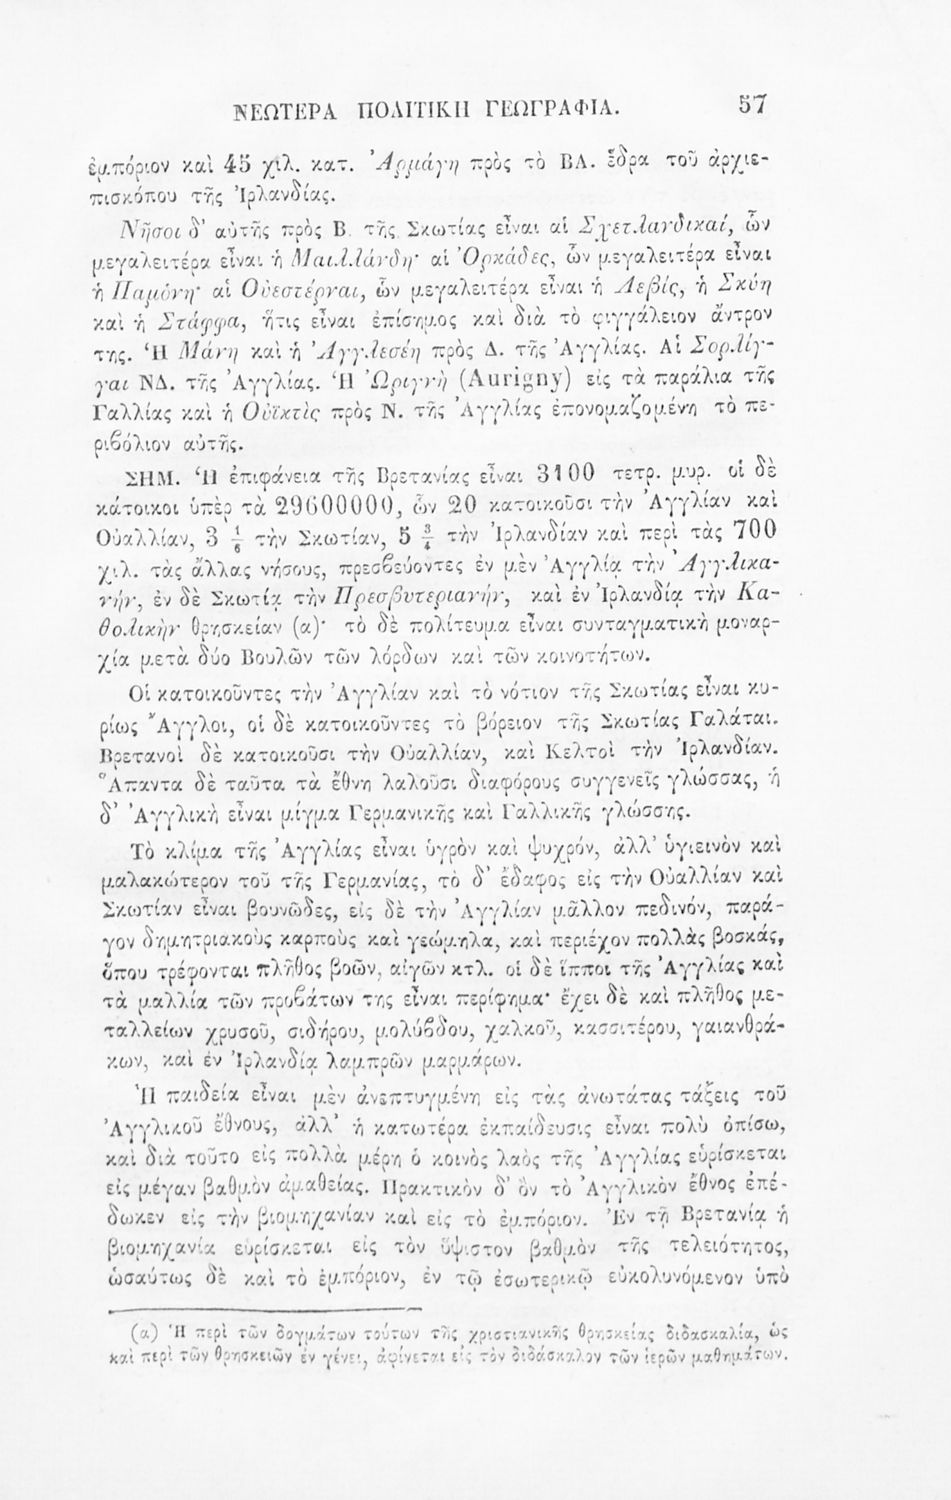 ΝΕΩΤΕΡΑ ΠΟΛΙΤΙΚΗ ΓΕΩΓΡΑΦΙΑ. 57
ἐμπόριον καὶ 45 χιλ. κατ. Ἀρμάγη πρὸς τὸ ΒΑ. ἕδρα τοῦ ἀρχιε-
πισκόπου τῆς Ἰρλανδίας.
Νῆσοι δ' αὐτῆς πρὸς Β. τῆς Σκωτίας εἶναι αἱ Σχετλανδικαί, ὧν
μεγαλειτέρα εἶναι ἡ Μαιλλάνδη· αἱ Ὀρκάδες, ὧν μεγαλειτέρα εἶναι
ἡ Παμόνη· αἱ Οὐεστέρναι, ὧν μεγαλειτέρα εἶναι ἡ Λεβίς, ἡ Σκύη
καὶ ἡ Στάφφα, ἥτις εἶναι ἐπίσημος καὶ διὰ τὸ φιγγάλειον ἄντρον
της. Ἡ Μάνη καὶ ἡ Ἀγγλεσέη πρὸς Δ. τῆς Ἀγγλίας. Αἱ Σορλίγ-
γαι ΝΔ. τῆς Ἀγγλίας. Ἡ Ὠριγνὴ (Aurigny) εἰς τὰ παράλια τῆς
Γαλλίας καὶ ἡ Οὐϊκτὶς πρὸς Ν. τῆς Ἀγγλίας ἐπονομαζομένη τὸ πε-
ριβόλιον αὐτῆς.
ΣΗΜ. Ἡ ἐπιφάνεια τῆς Βρετανίας εἶναι 3100 τετρ. μυρ. οἱ δὲ
κάτοικοι ὑπὲρ τὰ 29600000, ὧν 20 κατοικοῦσι τὴν Ἀγγλίαν καὶ
Οὐαλλίαν, 3 1/6 τὴν Σκωτίαν, 5 3/4 τὴν Ἰρλανδίαν καὶ περὶ τὰς 700
χιλ. τὰς ἄλλας νήσους, πρεσβεύοντες ἐν μὲν Ἀγγλίᾳ τὴν Ἀγγλικα-
νήν, ἐν δὲ Σκωτίᾳ τὴν Πρεσβυτεριανήν, καὶ ἐν Ἰρλανδίᾳ τὴν Κα-
θολικὴν θρησκείαν (α)· τὸ δὲ πολίτευμα εἶναι συνταγματικὴ μοναρ-
χία μετὰ δύο Βουλῶν τῶν λόρδων καὶ τῶν κοινοτήτων.
Οἱ κατοικοῦντες τὴν Ἀγγλίαν καὶ τὸ νότιον τῆς Σκωτίας εἶναι κυ-
ρίως Ἄγγλοι, οἱ δὲ κατοικοῦντες τὸ βόρειον τῆς Σκωτίας Γαλάται.
Βρετανοὶ δὲ κατοικοῦσι τὴν Οὐαλλίαν, καὶ Κελτοὶ τὴν Ἰρλανδίαν.
Ἅπαντα δὲ ταῦτα τὰ ἔθνη λαλοῦσι διαφόρους συγγενεῖς γλώσσας, ἡ
δ' Ἀγγλικὴ εἶναι μίγμα Γερμανικῆς καὶ Γαλλικῆς γλώσσης.
Τὸ κλίμα τῆς Ἀγγλίας εἶναι ὑγρὸν καὶ ψυχρόν, ἀλλ' ὑγιεινὸν καὶ
μαλακώτερον τοῦ τῆς Γερμανίας, τὸ δ' ἔδαφος εἰς τὴν Οὐαλλίαν καὶ
Σκωτίαν εἶναι βουνῶδες, εἰς δὲ τὴν Ἀγγλίαν μᾶλλον πεδινόν, παρά-
γον δημητριακοὺς καρποὺς καὶ γεώμηλα, καὶ περιέχον πολλὰς βοσκάς,
ὅπου τρέφονται πλῆθος βοῶν, αἰγῶν κτλ. οἱ δὲ ἵπποι τῆς Ἀγγλίας καὶ
τὰ μαλλία τῶν προβάτων της εἶναι περίφημα· ἔχει δὲ καὶ πλῆθος με-
ταλλείων χρυσοῦ, σιδήρου, μολύβδου, χαλκοῦ, κασσιτέρου, γαιανθρά-
κων, καὶ ἐν Ἰρλανδίᾳ λαμπρῶν μαρμάρων.
Ἡ παιδεία εἶναι μὲν ἀνεπτυγμένη εἰς τὰς ἀνωτάτας τάξεις τοῦ
Ἀγγλικοῦ ἔθνους, ἀλλ' ἡ κατωτέρα ἐκπαίδευσις εἶναι πολὺ ὀπίσω,
καὶ διὰ τοῦτο εἰς πολλὰ μέρη ὁ κοινὸς λαὸς τῆς Ἀγγλίας εὑρίσκεται
εἰς μέγαν βαθμὸν ἀμαθείας. Πρακτικὸν δ' ὂν τὸ Ἀγγλικὸν ἔθνος ἐπέ-
δωκεν εἰς τὴν βιομηχανίαν καὶ εἰς τὸ ἐμπόριον. Ἐν τῇ Βρετανίᾳ ἡ
βιομηχανία εὑρίσκεται εἰς τὸν ὕψιστον βαθμὸν τῆς τελειότητος,
ὡσαύτως δὲ καὶ τὸ ἐμπόριον, ἐν τῷ ἐσωτερικῷ εὐκολυνόμενον ὑπὸ
(α) Ἡ περὶ τῶν δογμάτων τούτων τῆς χριστιανικῆς θρησκείας διδασκαλία, ὡς
καὶ περὶ τῶν θρησκειῶν ἐν γένει, ἀφίνεται εἰς τὸν διδάσκαλον τῶν ἱερῶν μαθημάτων.